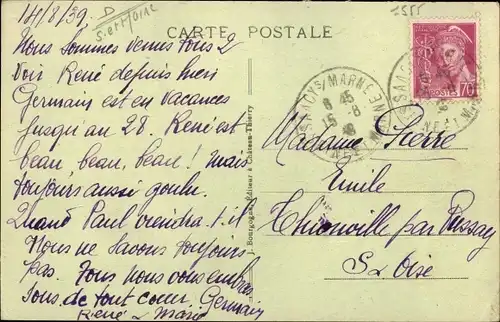 14/8/39.
D
S. et Marne
5555
CARTE POSTALE
Nous sommes venus tous 2
voir René depuis hier
Germain est en vacances
jusqu'au 28. René est
beau, beau, beau! mais
toujours aussi goulu.
Quand Paul viendra-t-il
Nous ne savons toujours
pas. Tous nous vous embras
sons de tout cœur, Germain
René & Marie
Bourgogne, Editeur à Château-Thierry
SAACY S/ MARNE
8 45
15-8
POSTES 70c
Madame Pierre
Emile
Thionville par
S & Oise